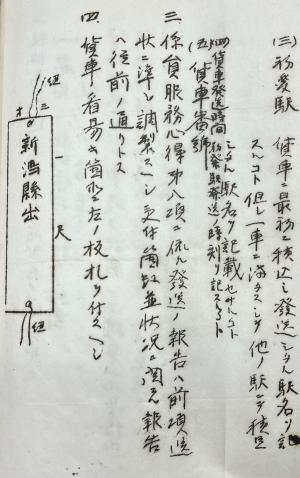 (三) 初発駅 貨車ニ最初ニ積込ミ発送シタル駅名ヲ記
スルコト但シ一車ニ満タズシテ他ノ駅ニテ積込
シタル駅名ヲ記載セサルコト
(四) 貨車発送時間 初発駅発送ノ時刻ヲ記スコト
(五) 貨車番号
三、係員服務心得第八項ニ依ル発送ノ報告ハ前項送
状ニ準シ調製スヘシ 箇数並状況ニ関スル報告
ハ従前ノ通リトス
四、貨車ノ看易キ箇所ニ左ノ板札ヲ付スヘシ
紐
一尺
三寸
新潟縣出
紐